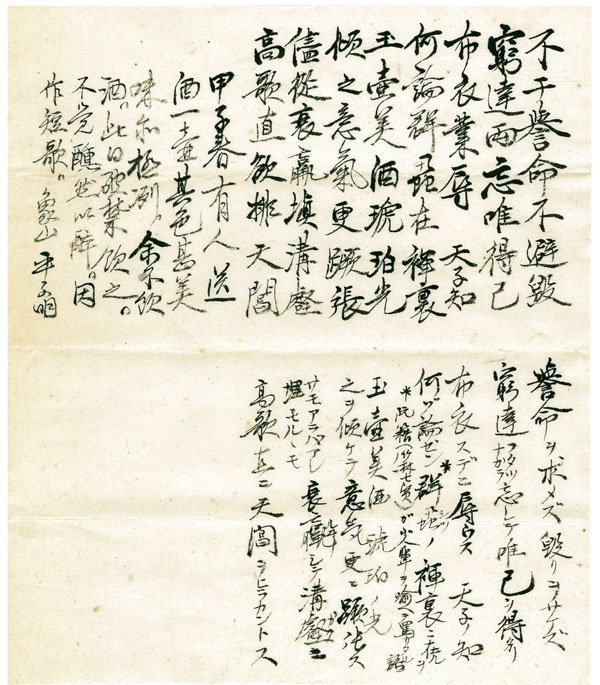 不干譽命不避毀
窮達両忘唯得己
布衣業辱天子知
何論群虱在褌裏
玉壺美酒琥珀光
傾之意氣更蹶張
儘従衰羸塡溝壑
高歌直欲排天閶
甲子春有人送
酒一壺其色甚美
味亦極冽余不飲
酒。此日破禁飲之。
不覚醺然以酔。因
作短歌。象山平子明
譽命ヲボメズ毀リヲサケズ
窮達フタツナガラ忘レテ唯己ヲ得タリ
布衣スデニ辱ウス天子ノ知
何ゾ論ゼン群虱ノ褌裏ニ在ルヲ
玉壺美酒琥珀ノ光
之ヲ傾ケテ意気更ニ蹶張ス
サモアラバアレ衰羸シテ溝壑ニ
埋モルルモ
高歌直ニ天閶ヲヒラカントス